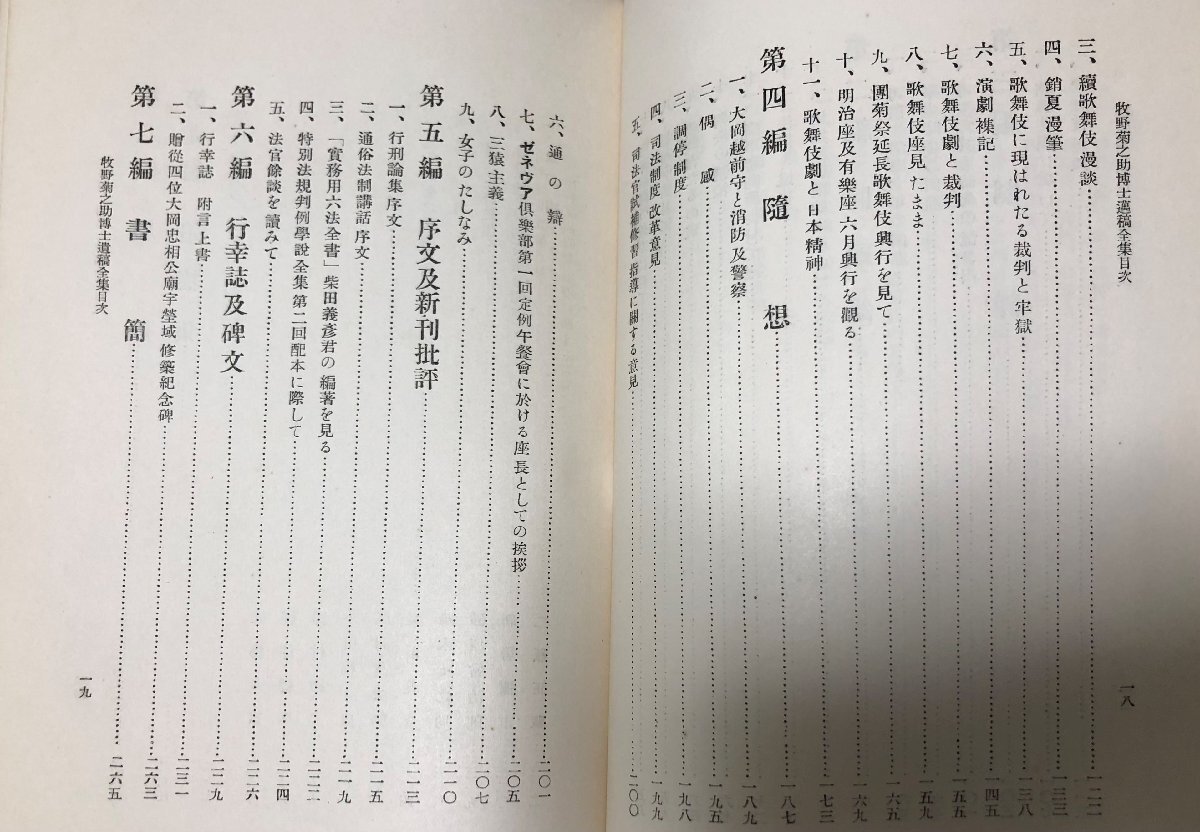 牧野菊之助博士遺稿全集目次
三、續歌舞伎漫談……一二二
四、銷夏漫筆……一三三
五、歌舞伎に現はれたる裁判と牢獄……一三八
六、演劇襍記……一四五
七、歌舞伎劇と裁判……一五五
八、歌舞伎座見たまま……一五九
九、團菊祭延長歌舞伎興行を見て……一六五
十、明治座及有樂座六月興行を觀る……一六九
十一、歌舞伎劇と日本精神……一七三
第四編 隨想……一八七
一、大岡越前守と消防及警察……一八九
二、偶感……一九五
三、調停制度……一九八
四、司法制度改革意見……一九九
五、司法官試補修習指導に關する意見……二〇〇
一八
六、通の辯……二〇一
七、ゼネヴァ倶樂部第一回定例午餐會に於ける座長としての挨拶……二〇五
八、三猿主義……二〇七
九、女子のたしなみ……二一〇
第五編 序文及新刊批評……二一三
一、行刑論集序文……二一五
二、通俗法制講話序文……二一五
三、「實務用六法全書」柴田義彥君の編著を見る……二一九
四、特別法規判例學說全集第二回配本に際して……二二二
五、法官餘談を讀みて……二二四
第六編 行幸誌及碑文……二二六
一、行幸誌 附言上書……二二九
二、贈從四位大岡忠相公廟宇塋域修築紀念碑……二三一
第七編 書簡……二六三
牧野菊之助博士遺稿全集目次
二六五
一九